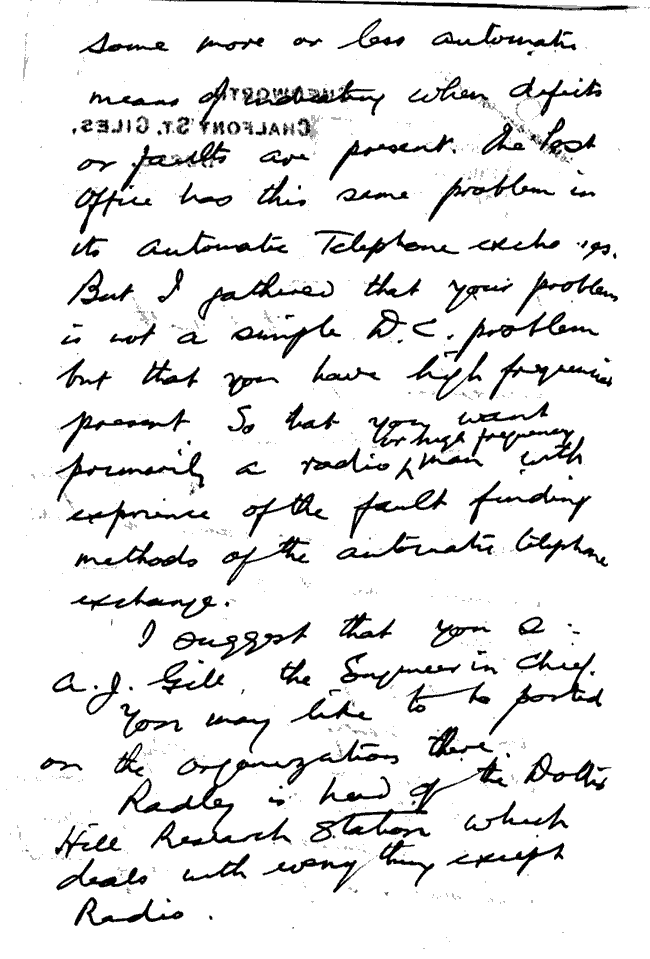 some more or less automatic
means of indicating when defects
CHALFONT ST. GILES,
or faults are present. The Post
Office has this same problem in
its automatic Telephone
But I gathered that your problem
is not a simple D.C. problem
but that you have high frequencies
present. So that you want
or high frequency
primarily a radio man with
exprience of the fault finding
methods of the automatic telephone
exchange.
I suggest that you
A. J. Gill, the Engineer in Chief.
You may like to be posted
on the organization there.
Radley is head of the Dollis
Hill Research Station which
deals with every thing except
Radio.